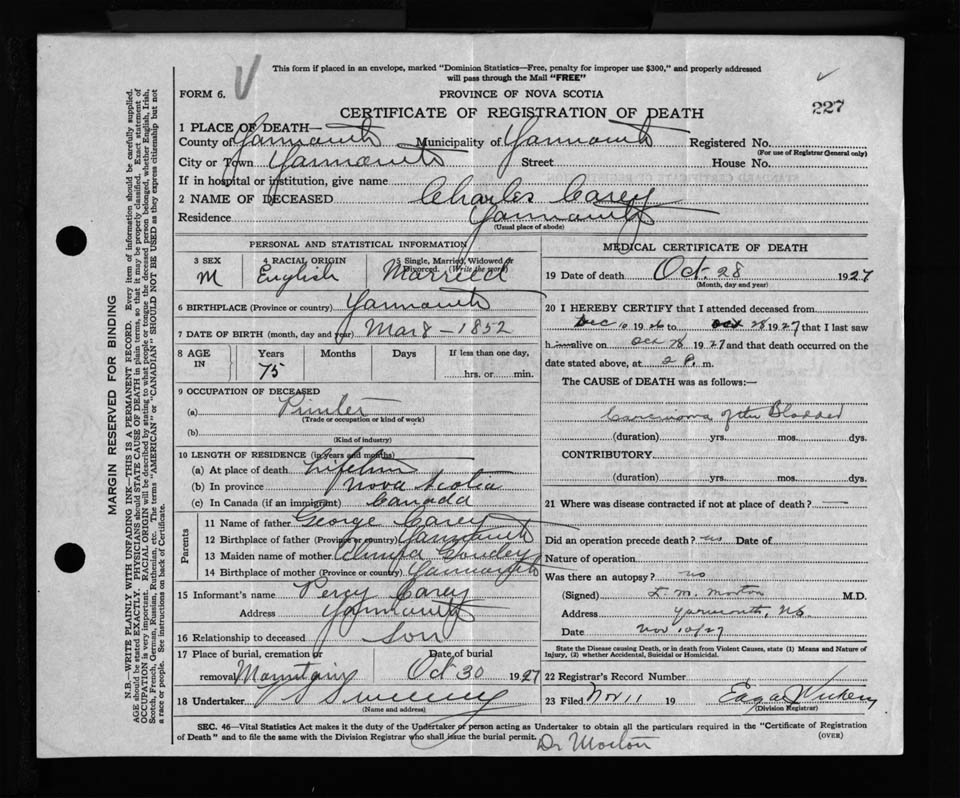 This form if placed in an envelope, marked "Dominion Statistics—Free, penalty for improper use $300," and properly addressed
will pass through the Mail "FREE"
FORM 6.
PROVINCE OF NOVA SCOTIA
227
CERTIFICATE OF REGISTRATION OF DEATH
1 PLACE OF DEATH—
County of Yarmouth Municipality of Yarmouth Registered No.
(For use of Registrar General only)
City or Town Yarmouth Street House No.
If in hospital or institution, give name
2 NAME OF DECEASED Charles Carey
Residence Yarmouth
(Usual place of abode)
PERSONAL AND STATISTICAL INFORMATION
3 SEX 4 RACIAL ORIGIN 5 Single, Married, Widowed or Divorced. (Write the word)
M English Married
6 BIRTHPLACE (Province or country) Yarmouth
7 DATE OF BIRTH (month, day and year) Mar 8 - 1852
8 AGE IN Years Months Days If less than one day,
75 hrs. or min.
9 OCCUPATION OF DECEASED
(a) Printer
(Trade or occupation or kind of work)
(b)
(Kind of industry)
10 LENGTH OF RESIDENCE (in years and months)
(a) At place of death Lifetime
(b) In province Nova Scotia
(c) In Canada (if an immigrant) Canada
Parents
11 Name of father George Carey
12 Birthplace of father (Province or country) Yarmouth
13 Maiden name of mother Goudey
14 Birthplace of mother (Province or country) Yarmouth
15 Informant's name Percy Carey
Address Yarmouth
16 Relationship to deceased Son
17 Place of burial, cremation or Date of burial
removal Mountain Oct 30 1927
18 Undertaker V S Sweeny
(Name and address)
MEDICAL CERTIFICATE OF DEATH
19 Date of death Oct. 28 1927
(Month, day and year)
20 I HEREBY CERTIFY that I attended deceased from
Dec 10 1926 to Oct 28 1927 that I last saw
h im alive on Oct 28 1927 and that death occurred on the
date stated above, at 2 P. m.
The CAUSE of DEATH was as follows:—
Carcinoma of the Bladder
(duration) yrs. mos. dys.
CONTRIBUTORY
(duration) yrs. mos. dys.
21 Where was disease contracted if not at place of death?
Did an operation precede death? no Date of
Nature of operation
Was there an autopsy? no
(Signed) L. M. Morton M.D.
Address Yarmouth, NS
Date Nov 10/27
State the Disease causing Death, or in death from Violent Causes, state (1) Means and Nature of
Injury, (2) whether Accidental, Suicidal or Homicidal.
22 Registrar's Record Number
23 Filed Nov 11 19 Edgar Vickery
(Division Registrar)
SEC. 46—Vital Statistics Act makes it the duty of the Undertaker or person acting as Undertaker to obtain all the particulars required in the "Certificate of Registration
of Death" and to file the same with the Division Registrar who shall issue the burial permit.
(OVER)
Dr Morton
MARGIN RESERVED FOR BINDING
N.B.—WRITE PLAINLY WITH UNFADING INK—THIS IS A PERMANENT RECORD. Every item of information should be carefully supplied.
AGE should be stated EXACTLY. PHYSICIANS should STATE CAUSE OF DEATH in plain terms, so that it may be properly classified. Exact statement of
OCCUPATION is very important. RACIAL ORIGIN will be described by stating to what people or tongue the deceased person belonged, whether English, Irish,
Scotch, French, German, Russian, Ruthenian, etc. The terms "AMERICAN" or "CANADIAN" SHOULD NOT BE USED as they express citizenship but not
a race or people. See instructions on back of Certificate.